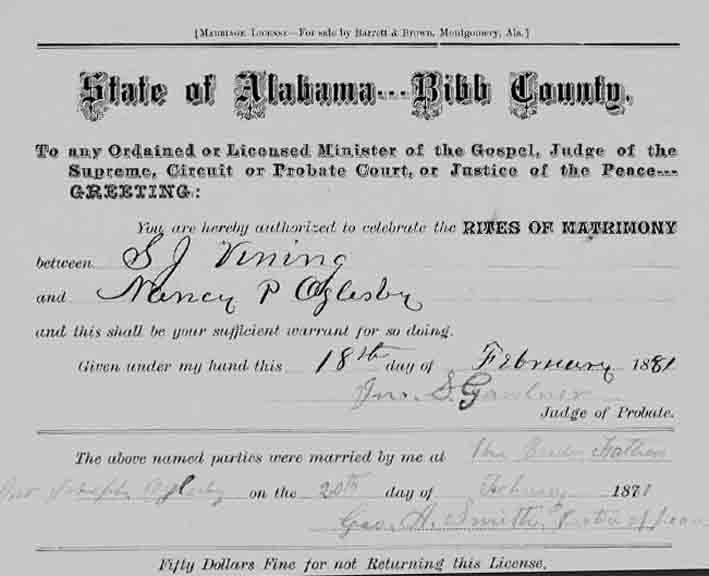 [MARRIAGE LICENSE—For sale by Barrett & Brown, Montgomery, Ala.]
State of Alabama---Bibb County.
To any Ordained or Licensed Minister of the Gospel, Judge of the
Supreme, Circuit or Probate Court, or Justice of the Peace---
GREETING:
You are hereby authorized to celebrate the RITES OF MATRIMONY
between S J Vining
and Nancy P Oglesby
and this shall be your sufficient warrant for so doing.
Given under my hand this 18th day of February 1881
Jno. S. Gardner
Judge of Probate.
The above named parties were married by me at the Brides Fathers
Joseph Oglesby on the 20th day of February 1881
Geo. A. Smith, of Peace
Fifty Dollars Fine for not Returning this License.